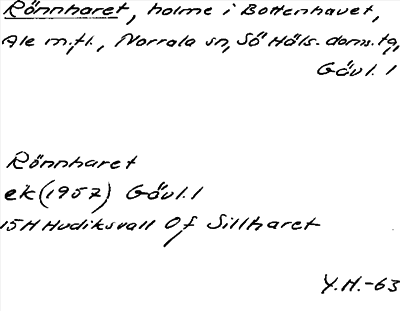 Rönnharet, holme i Bottenhavet,
Ale m.fl., Norrala sn, Sö Häls. doms. tg,
Gävl. l
Rönnharet
ek (1957) Gävl. l
15H Hudiksvall Of Sillharet
Y.H.-63